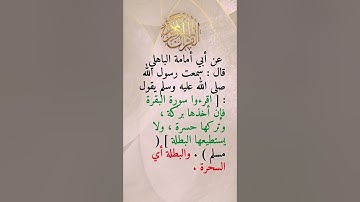 القرآن الكريم
عن أبي أمامة الباهلي
قال : سمعت رسول الله
صلى الله عليه وسلم يقول
: [ اقرءوا سورة البقرة
فإن أخذها بركة ،
وتركها حسرة ، ولا
يستطيعها البطلة ] (
مسلم ) . والبطلة أي
السحرة .